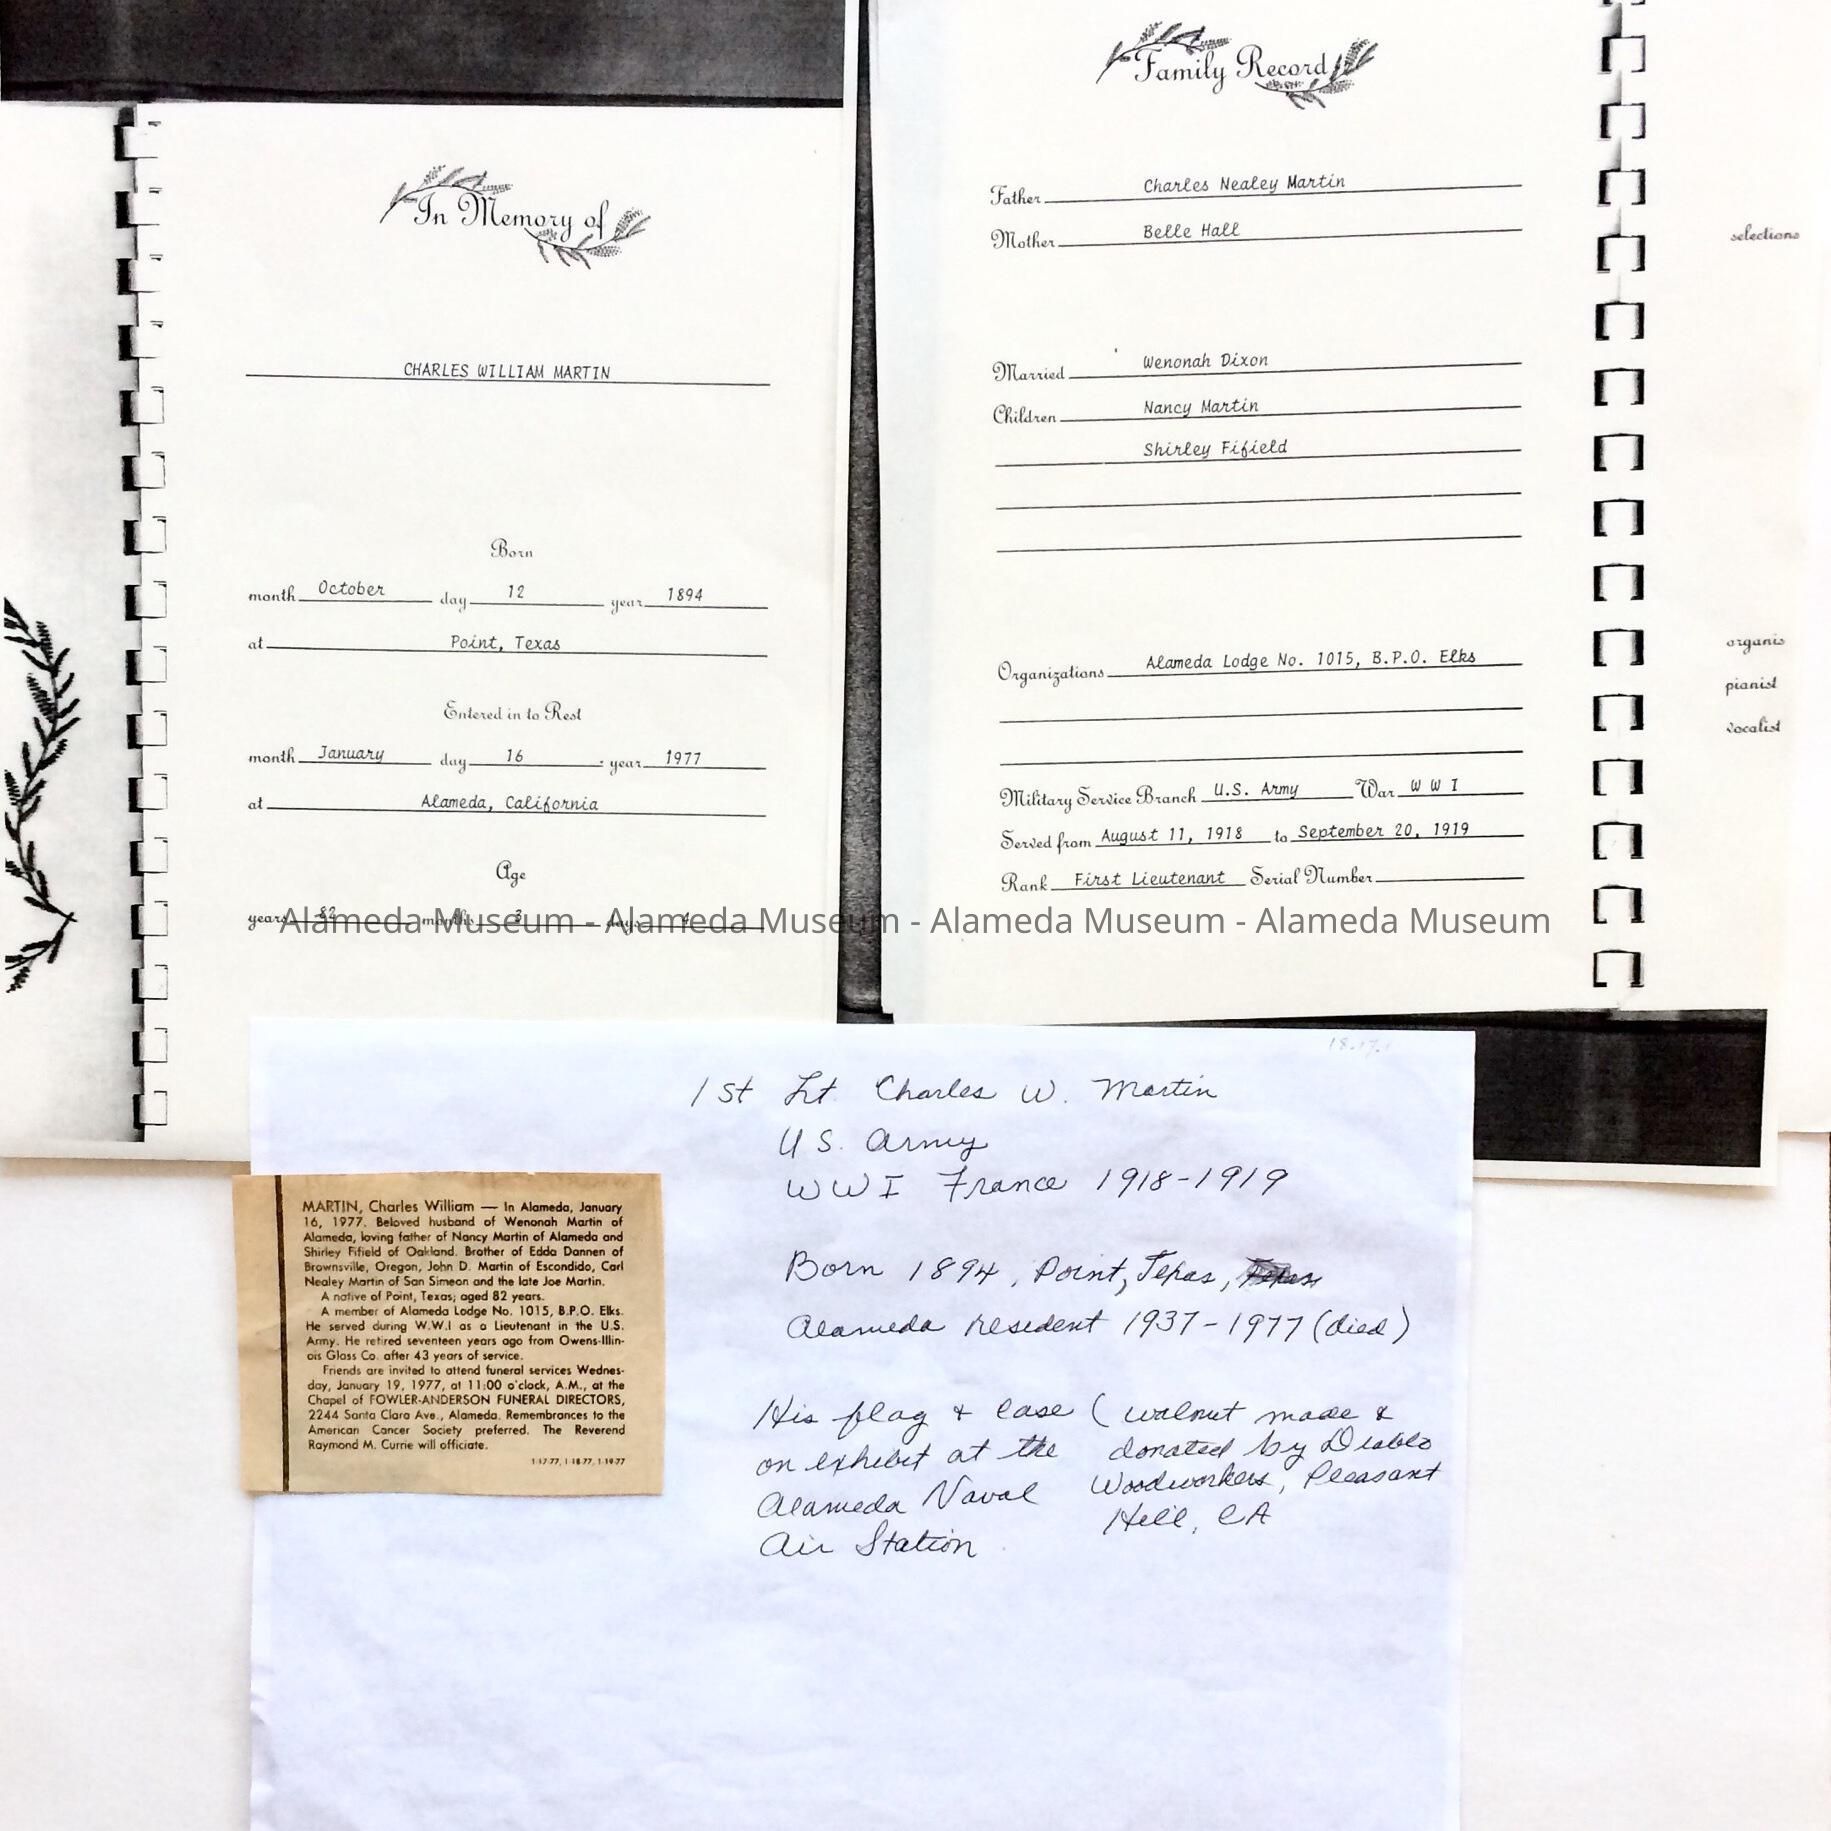 In Memory of
CHARLES WILLIAM MARTIN
Born
month October day 12 year 1894
at Point, Texas
Entered in to Rest
month January day 16 year 1977
at Alameda, California
Age
years 82 months 3 days 4
Family Record
Father Charles Nealey Martin
Mother Belle Hall
Married Wenonah Dixon
Children Nancy Martin
Shirley Fifield
Organizations Alameda Lodge No. 1015, B.P.O. Elks
Military Service Branch U.S. Army War W W I
Served from August 11, 1918 to September 20, 1919
Rank First Lieutenant Serial Number
selections
organis
pianist
vocalist
Alameda Museum - Alameda Museum - Alameda Museum - Alameda Museum
1st Lt. Charles W. Martin
U S. Army
WWI France 1918-1919
Born 1894, Point, Texas,
Alameda resident 1937-1977 (died)
His flag & case (walnut made &
on exhibit at the donated by Diablo
Alameda Naval Woodworkers, Pleasant
Air Station Hill, CA
MARTIN, Charles William — In Alameda, January
16, 1977. Beloved husband of Wenonah Martin of
Alameda, loving father of Nancy Martin of Alameda and
Shirley Fifield of Oakland. Brother of Edda Dannen of
Brownsville, Oregon, John D. Martin of Escondido, Carl
Nealey Martin of San Simeon and the late Joe Martin.
A native of Point, Texas; aged 82 years.
A member of Alameda Lodge No. 1015, B.P.O. Elks.
He served during W.W.I as a Lieutenant in the U.S.
Army. He retired seventeen years ago from Owens-Illin-
ois Glass Co. after 43 years of service.
Friends are invited to attend funeral services Wednes-
day, January 19, 1977, at 11:00 o'clock, A.M., at the
Chapel of FOWLER-ANDERSON FUNERAL DIRECTORS,
2244 Santa Clara Ave., Alameda. Remembrances to the
American Cancer Society preferred. The Reverend
Raymond M. Currie will officiate.
1-17-77, 1-18-77, 1-19-77